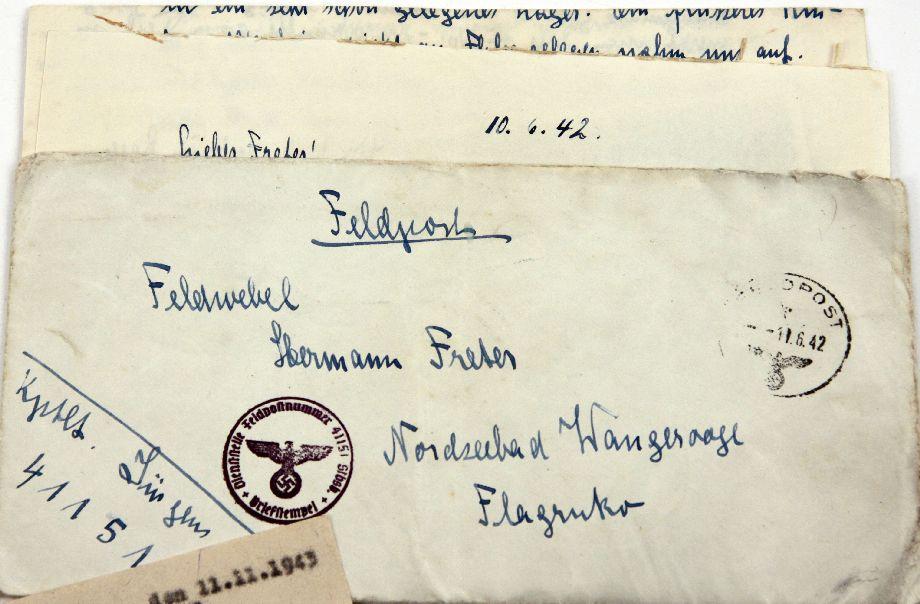 in ein sehr schön gelegenes Lager. Ein
nahm uns auf.
10. 6. 42.
Lieber Freter!
Feldpost
Feldwebel
Hermann Freter
Nordseebad Wangerooge
Flagruko
FELDPOST
-11.6.42
Dienststelle Feldpostnummer 41151
Briefstempel
Kptlt.
41151
den 11.11.1943